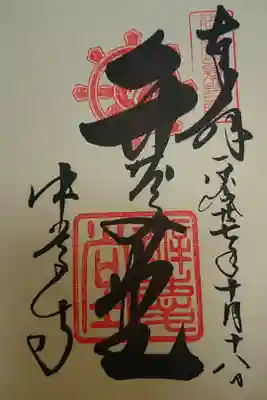 奉拝
平成廿七年十月十八日
弁慶堂
中尊寺